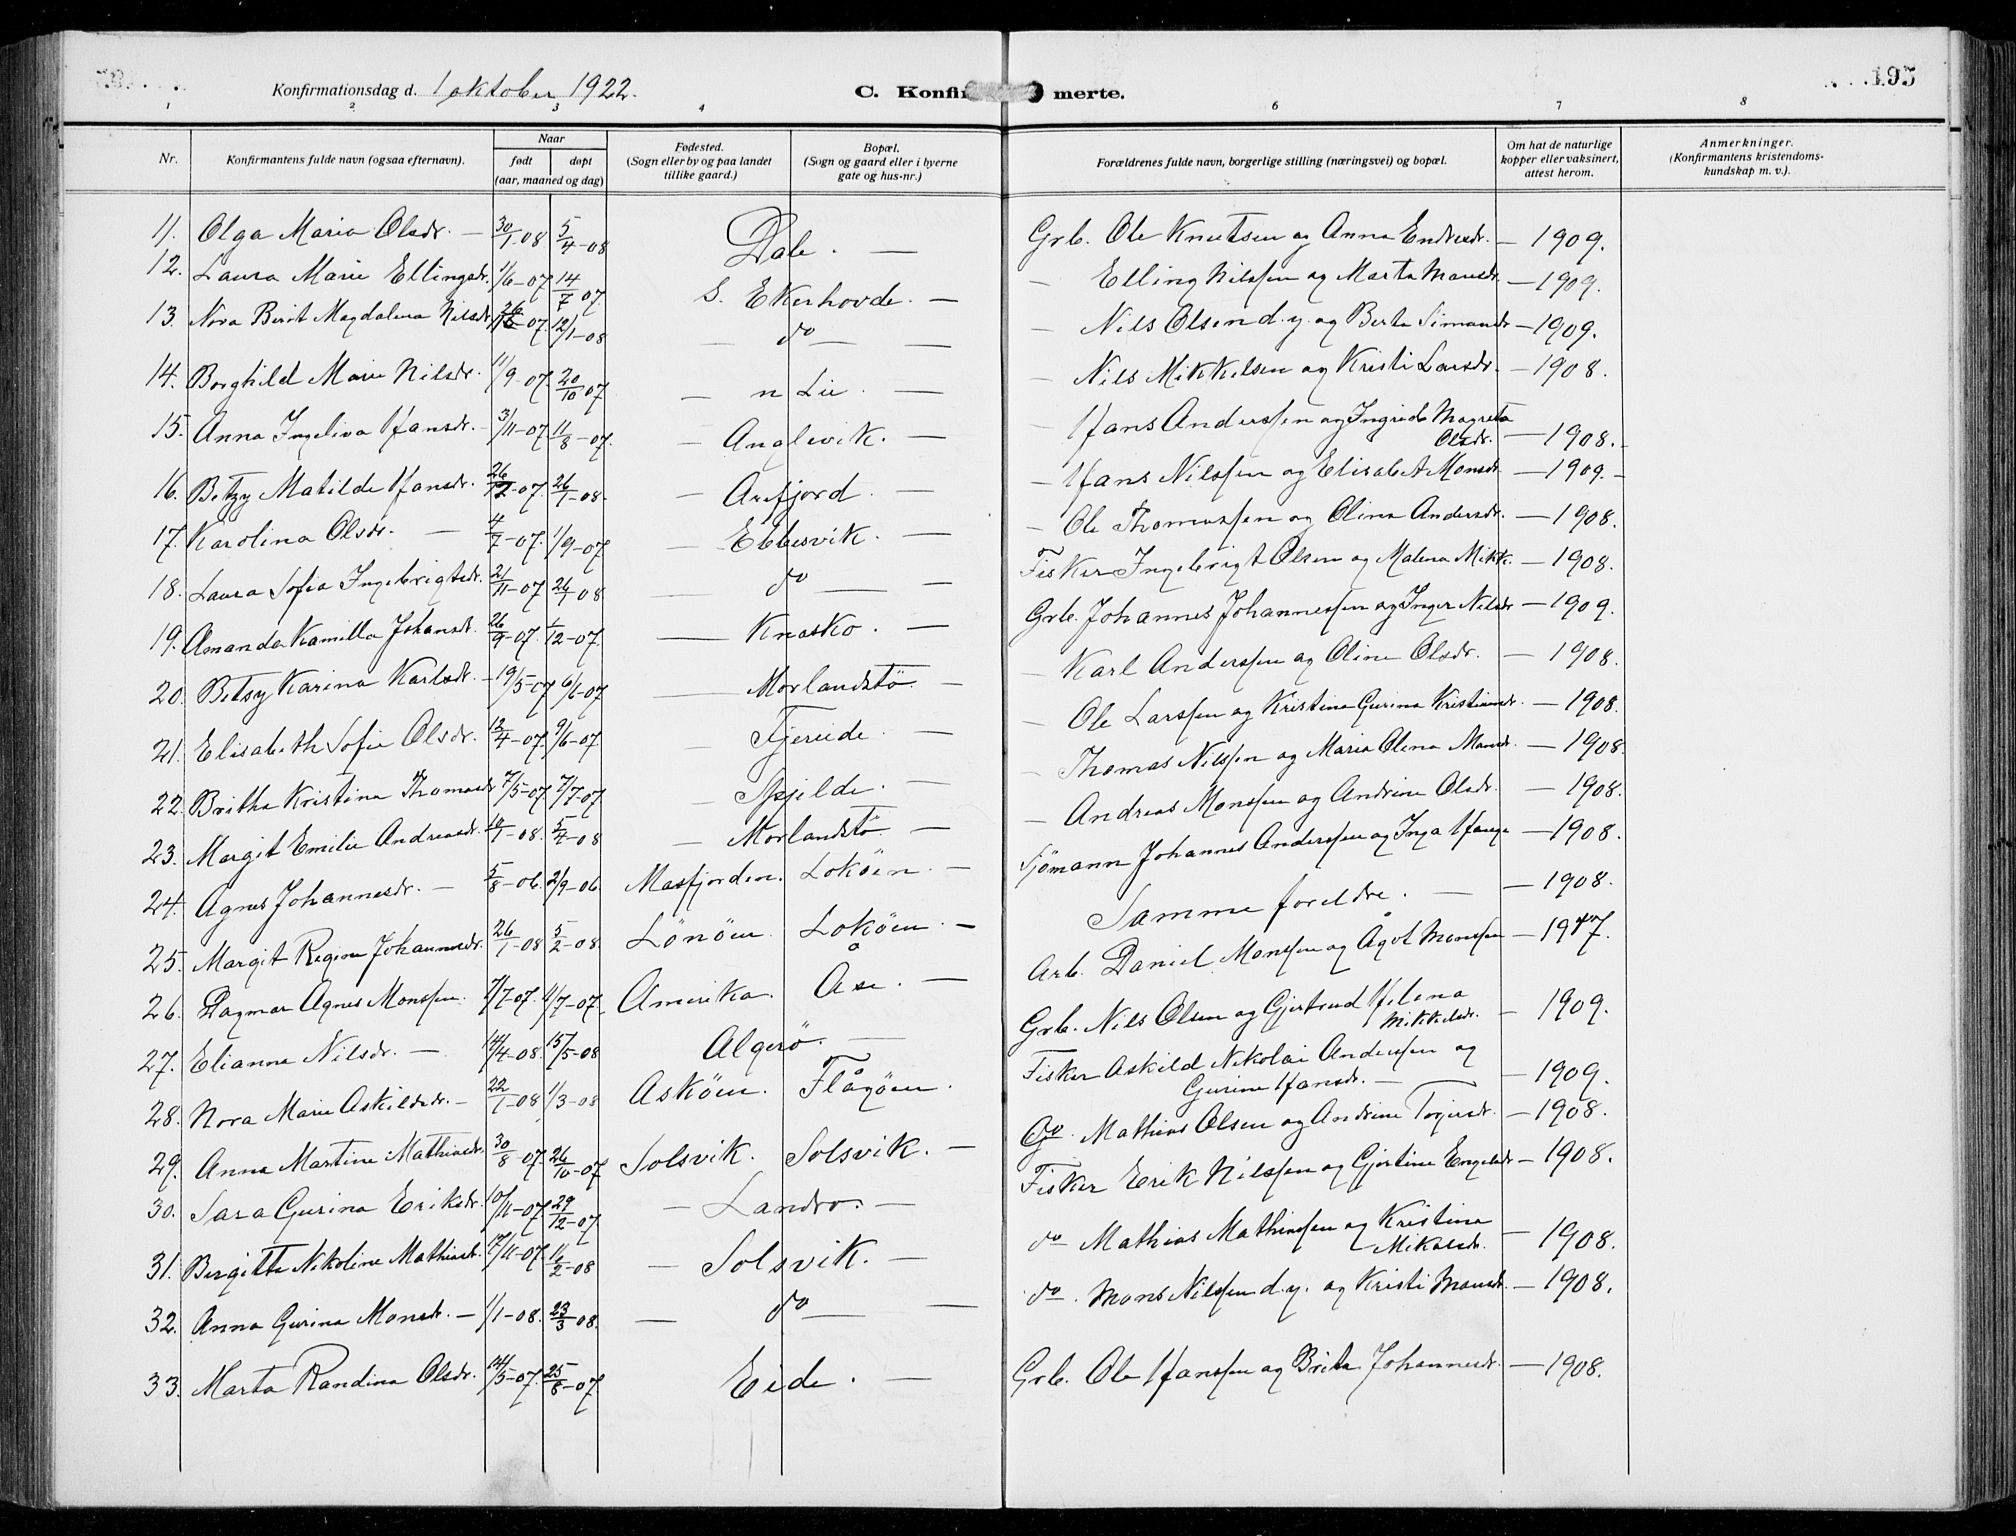 Konfirmationsdag d. 1 oktober 1922.
C. Konfirmerte.
195
1 2 3 4 6 7 8
Nr.
Konfirmantens fulde navn (ogsaa efternavn).
Naar
født døpt
(aar, maaned og dag)
Fødested.
(Sogn eller by og paa landet
tillike gaard.)
Bopæl.
(Sogn og gaard eller i byerne
gate og hus-nr.)
Forældrenes fulde navn, borgerlige stilling (næringsvei) og bopæl.
Om hat de naturlige
kopper eller vaksinert,
attest herom.
Anmerkninger.
(Konfirmantens kristendoms-
kundskap m. v.).
11. Olga Maria Olsdr. — 30/1-08 5/4-08 Dale. — Grb. Ole Knutsen og Anna Endresdr. — 1909.
12. Laura Marie Ellingsdr. 1/6-07 14/7 07. S. Ekerhovde. — — Elling Nilssen og Marta Monsdr. — 1909.
13. Nora Berit Magdalena Nilsdr. 07. 12/1-08 — do — — — Nils Olsen d.y. og Berta Simonsdr — 1909.
14. Borghild Marie Nilsdr. 11/9-07. 20/10 07 — n Lie. — — Nils Mikkelsen og Kristi Larsdr. — 1908.
15. Anna Ingeliva Hansdr. — 3/11-07 11/8-07. — Anglevik. — — Hans Anderssen og Ingrid Magreta
Olsdr. — 1908. —
16. Betzy Matilde Hansdr. 26/12-07. 26/1-08. — Arefjord. — — Hans Nilssen og Elisabet Monsdr — 1909. —
17. Karolina Olsdr. — 4/7-07. 1/9-07 — Ebbesvik. — — Ole Thomassen og Olina Andersdr. — 1908.
18. Laura Sofia Ingebrigtsdr. 21/11-07 26/1 08 — do — — Fisker Ingebrigt Olsen og Malena Mikk. — 1908.
19. Amanda Kamilla Johansdr. 26/9-07. 1/12-07. — Knasko. — Grb. Johannes Johannessen og Inger Nilsdr — 1909.
20. Betsy Karina Karlsdr. — 19/5-07 6/6-07 — Morlandstö. — — Karl Anderssen og Oline Olsdr. — 1908.
21. Elisabeth Sofie Olsdr. 12/4-07. 9/6-07 — Fjereide. — — Ole Larssen og Kristina Gurina Kristiansdr. — 1908.
22. Britha Kristina Thomasdr 7/5-07. 7/7-07 — Skjilde. — — Thomas Nilssen og Maria Olena Monsdr. — 1908.
23. Margit Emilie Andreasdr. 10/1-08. 5/4-08 — Morlandstö — — Andreas Monssen og Andrine Olsdr. — 1908.
24. Agnes Johannesdr. — 5/8-06. 2/9-06. Masfjorden. Loköen. — Sjömann Johannes Anderssen og Inga Hauge — 1908.
25. Margit Regine Johannesdr. 26/1-08 5/2-08. Lönöen. Loköen. — Samme foreldre. — — 1908.
26. Dagmar Agnes Monssen. 7/7-07. Amerika. Åse. — Arb. Daniel Monssen og Ågot Monssen — 1917.
27. Elianna Nilsdr. — 14/4-08. 15/5-08 Algerö. — Grb. Nils Olsen og Gjertrud Helena
Mikkelsdr. — 1909.
28. Nora Marie Askildsdr. — 22/1-08 1/3-08 Asköen. Flågöen. Fisker Askild Nikolai Anderssen og
Gurine Hansdr. — — 1909.
29. Anna Martine Mathiasdr. 30/8-07. 26/10-07 Solsvik. Solsvik. — Do. Mathias Olsen og Andrine Torjersdr. — 1908.
30. Sara Gurina Eriksdr. 10/11-07 29/12-07 — Landro. — Fisker Erik Nilssen og Gjertine Engelsdr — 1908.
31. Bergitta Nikoline Mathiasdr. 17/11-07. 16/2-08 — Solsvik. — do Mathias Mathiassen og Kristina
Mikalsdr. — 1908.
32. Anna Gurina Monsdr. — 1/1-08. 23/3 08. — do — — do. Mons Nilssen d.y. og Kristi Monsdr. — 1908.
33. Marta Randina Olsdr. 14/5-07. 25/8-07 Eide. — Grb. Ole Hanssen og Brita Johannesdr. — 1908.